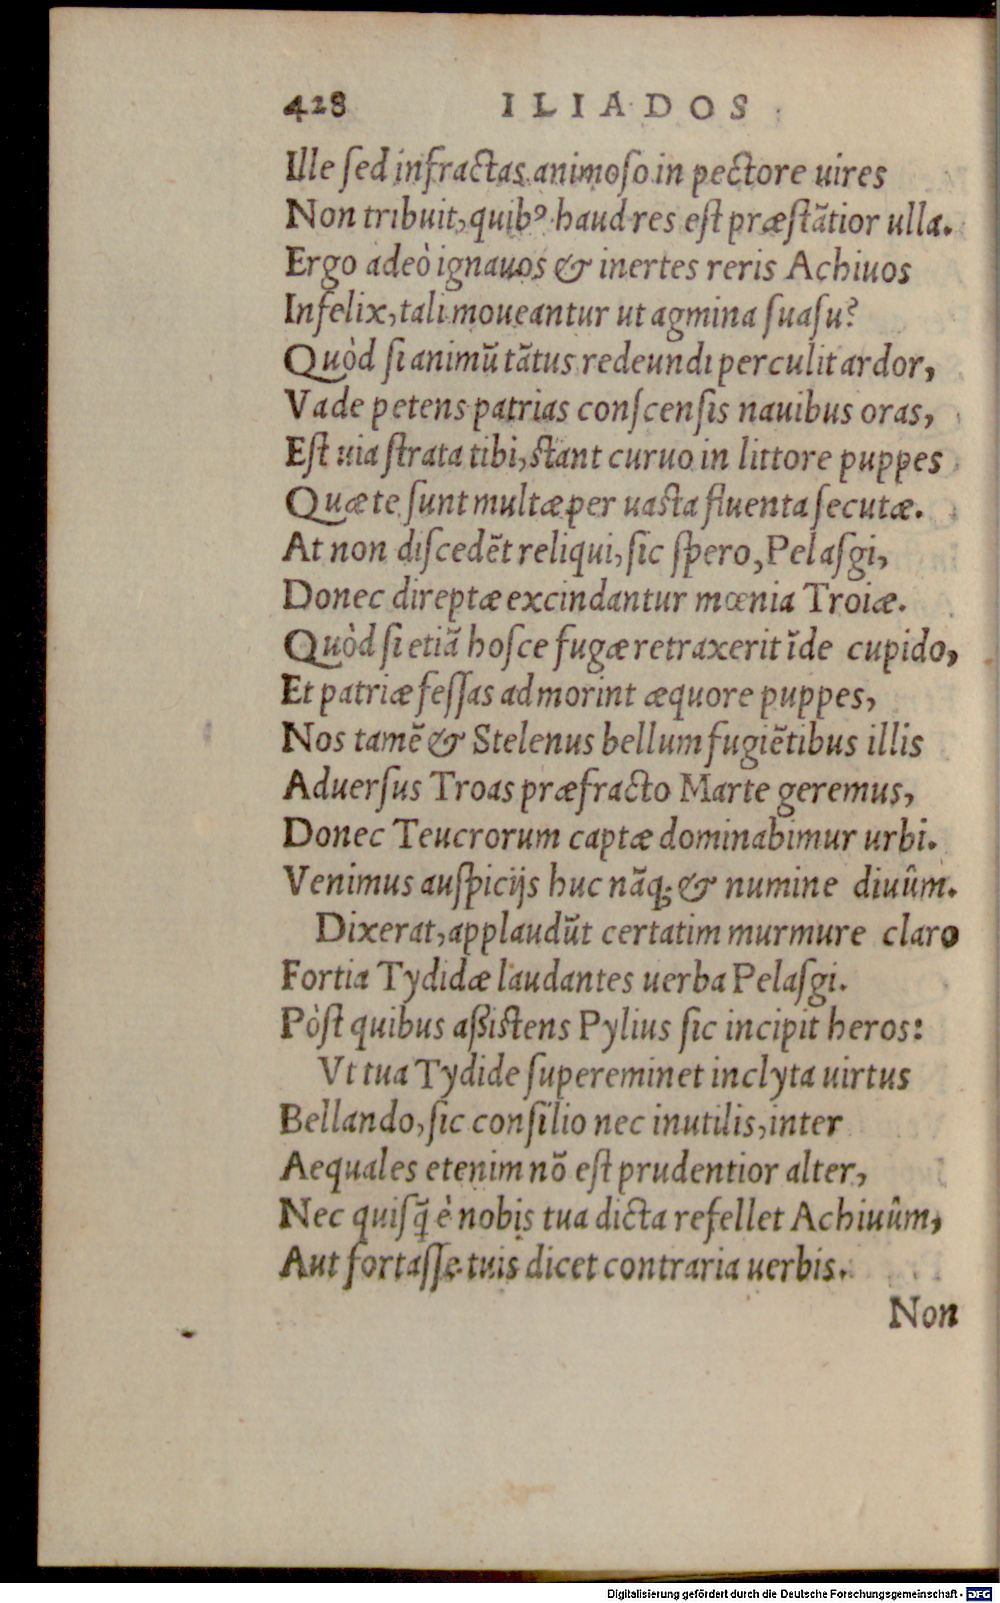 428 ILIADOS
Ille ſed infractas animoſo in pectore uires
Non tribuit, quibꝰ haud res eſt præſtãtior ulla.
Ergo adeò ignauos & inertes reris Achiuos
Infelix, tali moueantur ut agmina ſuaſu?
Quòd ſi animũ tãtus redeundi perculit ardor,
Vade petens patrias conſcenſis nauibus oras,
Eſt uia ſtrata tibi, ſtant curuo in littore puppes
Quæ te ſunt multæ per uaſta fluenta ſecutæ.
At non diſcedẽt reliqui, ſic ſpero, Pelaſgi,
Donec direptæ excindantur mœnia Troiæ.
Quòd ſi etiã hoſce fugæ retraxerit ĩde cupido,
Et patriæ feſſas admorint æquore puppes,
Nos tamẽ & Stelenus bellum fugiẽtibus illis
Aduerſus Troas præfracto Marte geremus,
Donec Teucrorum captæ dominabimur urbi.
Venimus auſpicijs huc nãq; & numine diuûm.
Dixerat, applaudũt certatim murmure claro
Fortia Tydidæ laudantes uerba Pelaſgi.
Pòſt quibus aßiſtens Pylius ſic incipit heros:
Vt tua Tydide ſupereminet inclyta uirtus
Bellando, ſic conſilio nec inutilis, inter
Aequales etenim nõ eſt prudentior alter,
Nec quiſq̃ è nobis tua dicta refellet Achiuûm,
Aut fortaſſe tuis dicet contraria uerbis.
Non
Digitalisierung gefördert durch die Deutsche Forschungsgemeinschaft - DFG